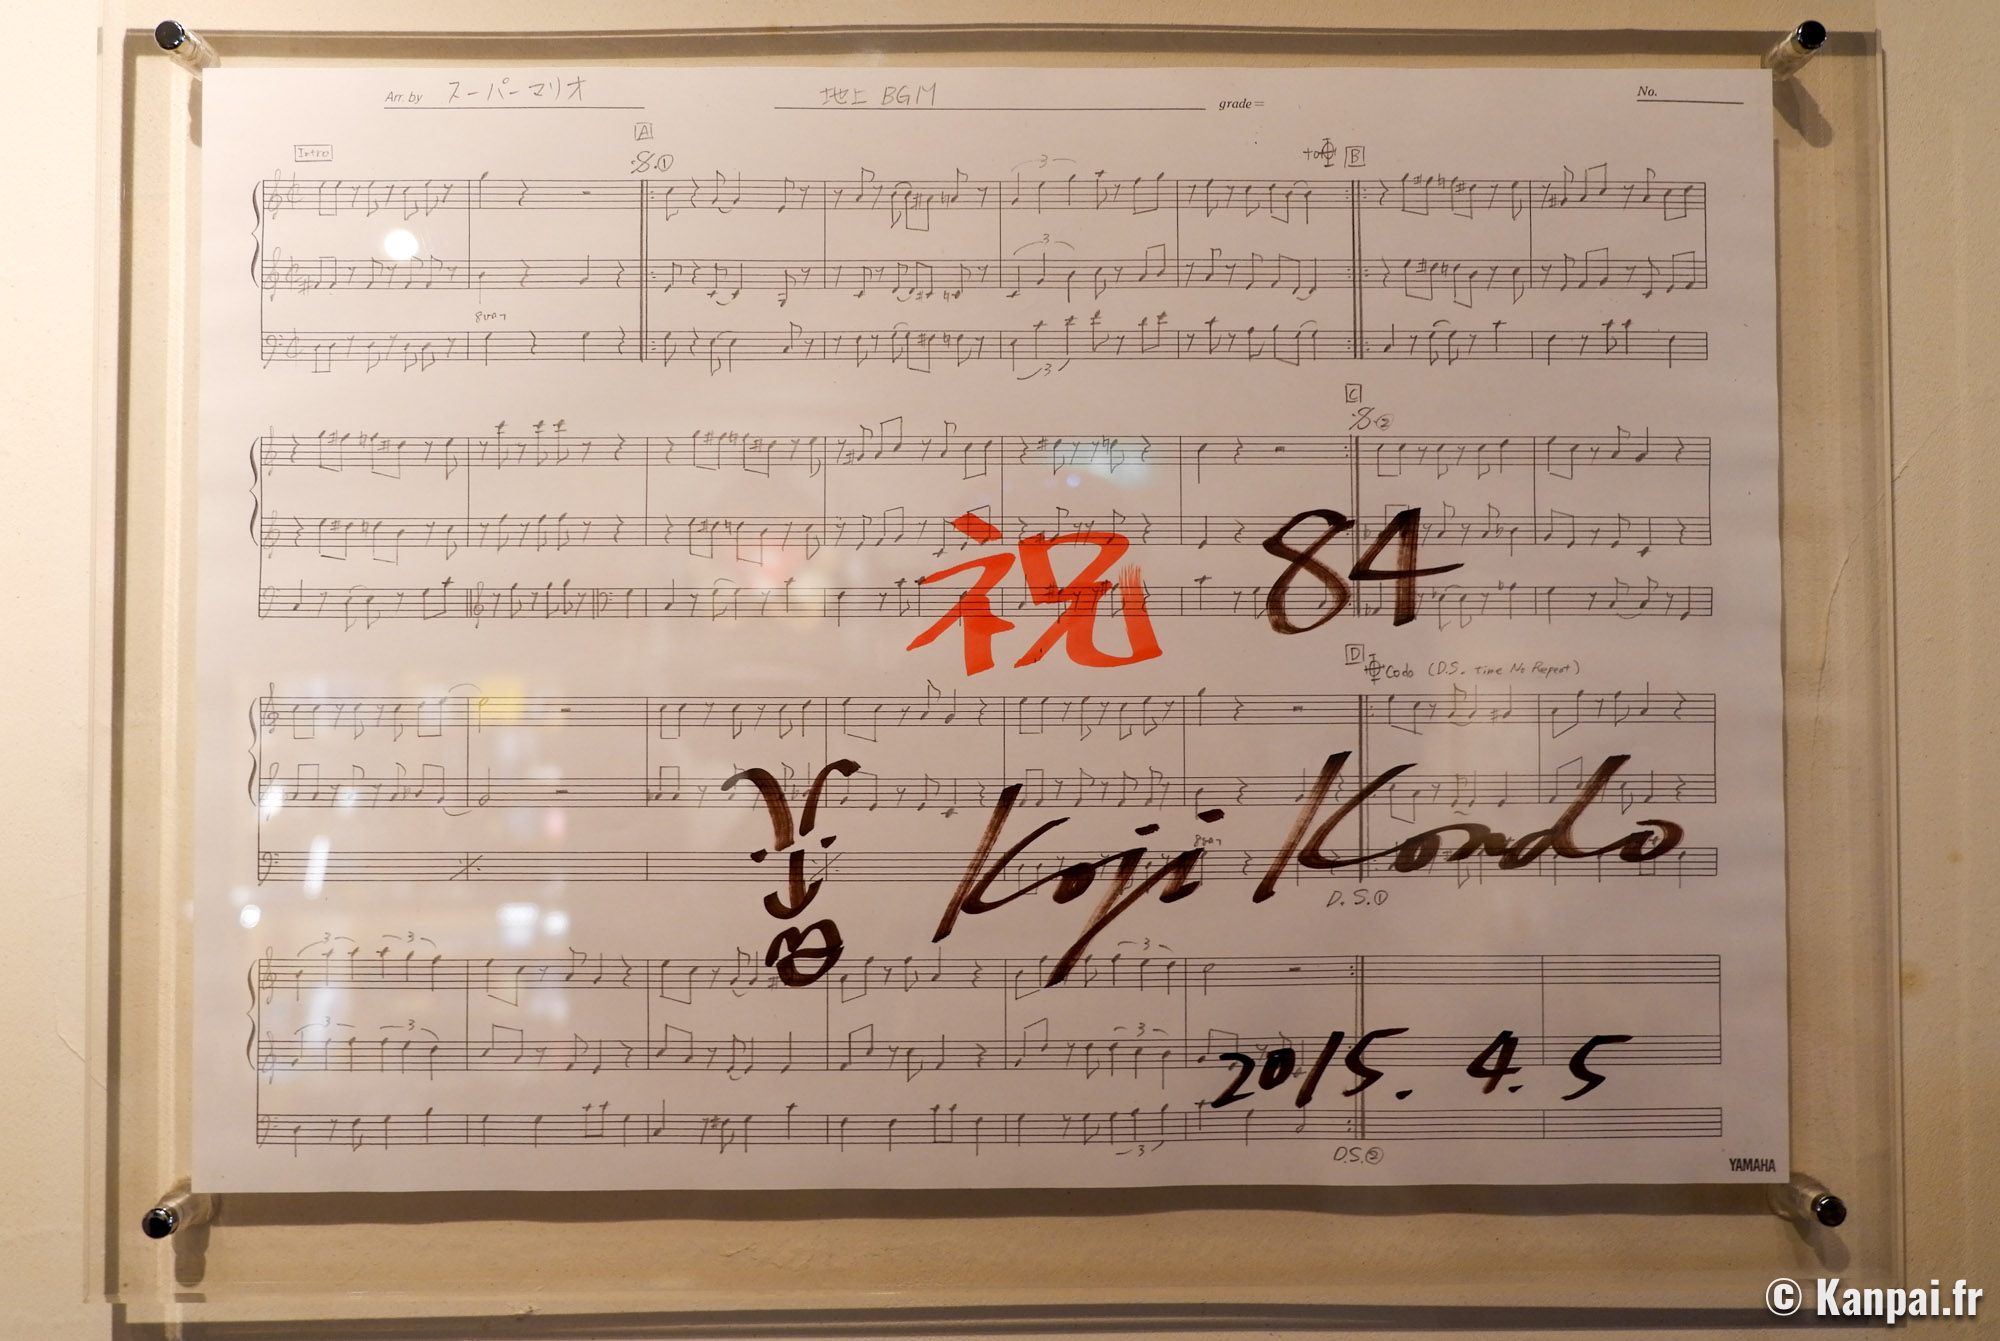 Arr. by スーパーマリオ 地上 BGM grade= No.
Intro A
𝄋① to 𝄌 B
3
3
8va
3
C
𝄋②
祝 84
D
𝄌 Coda (D.S. time No Repeat)
Koji Kondo
8va
D.S.①
3 3 3
3 3 3
2015.4.5
3
D.S.②
YAMAHA
© Kanpai.fr